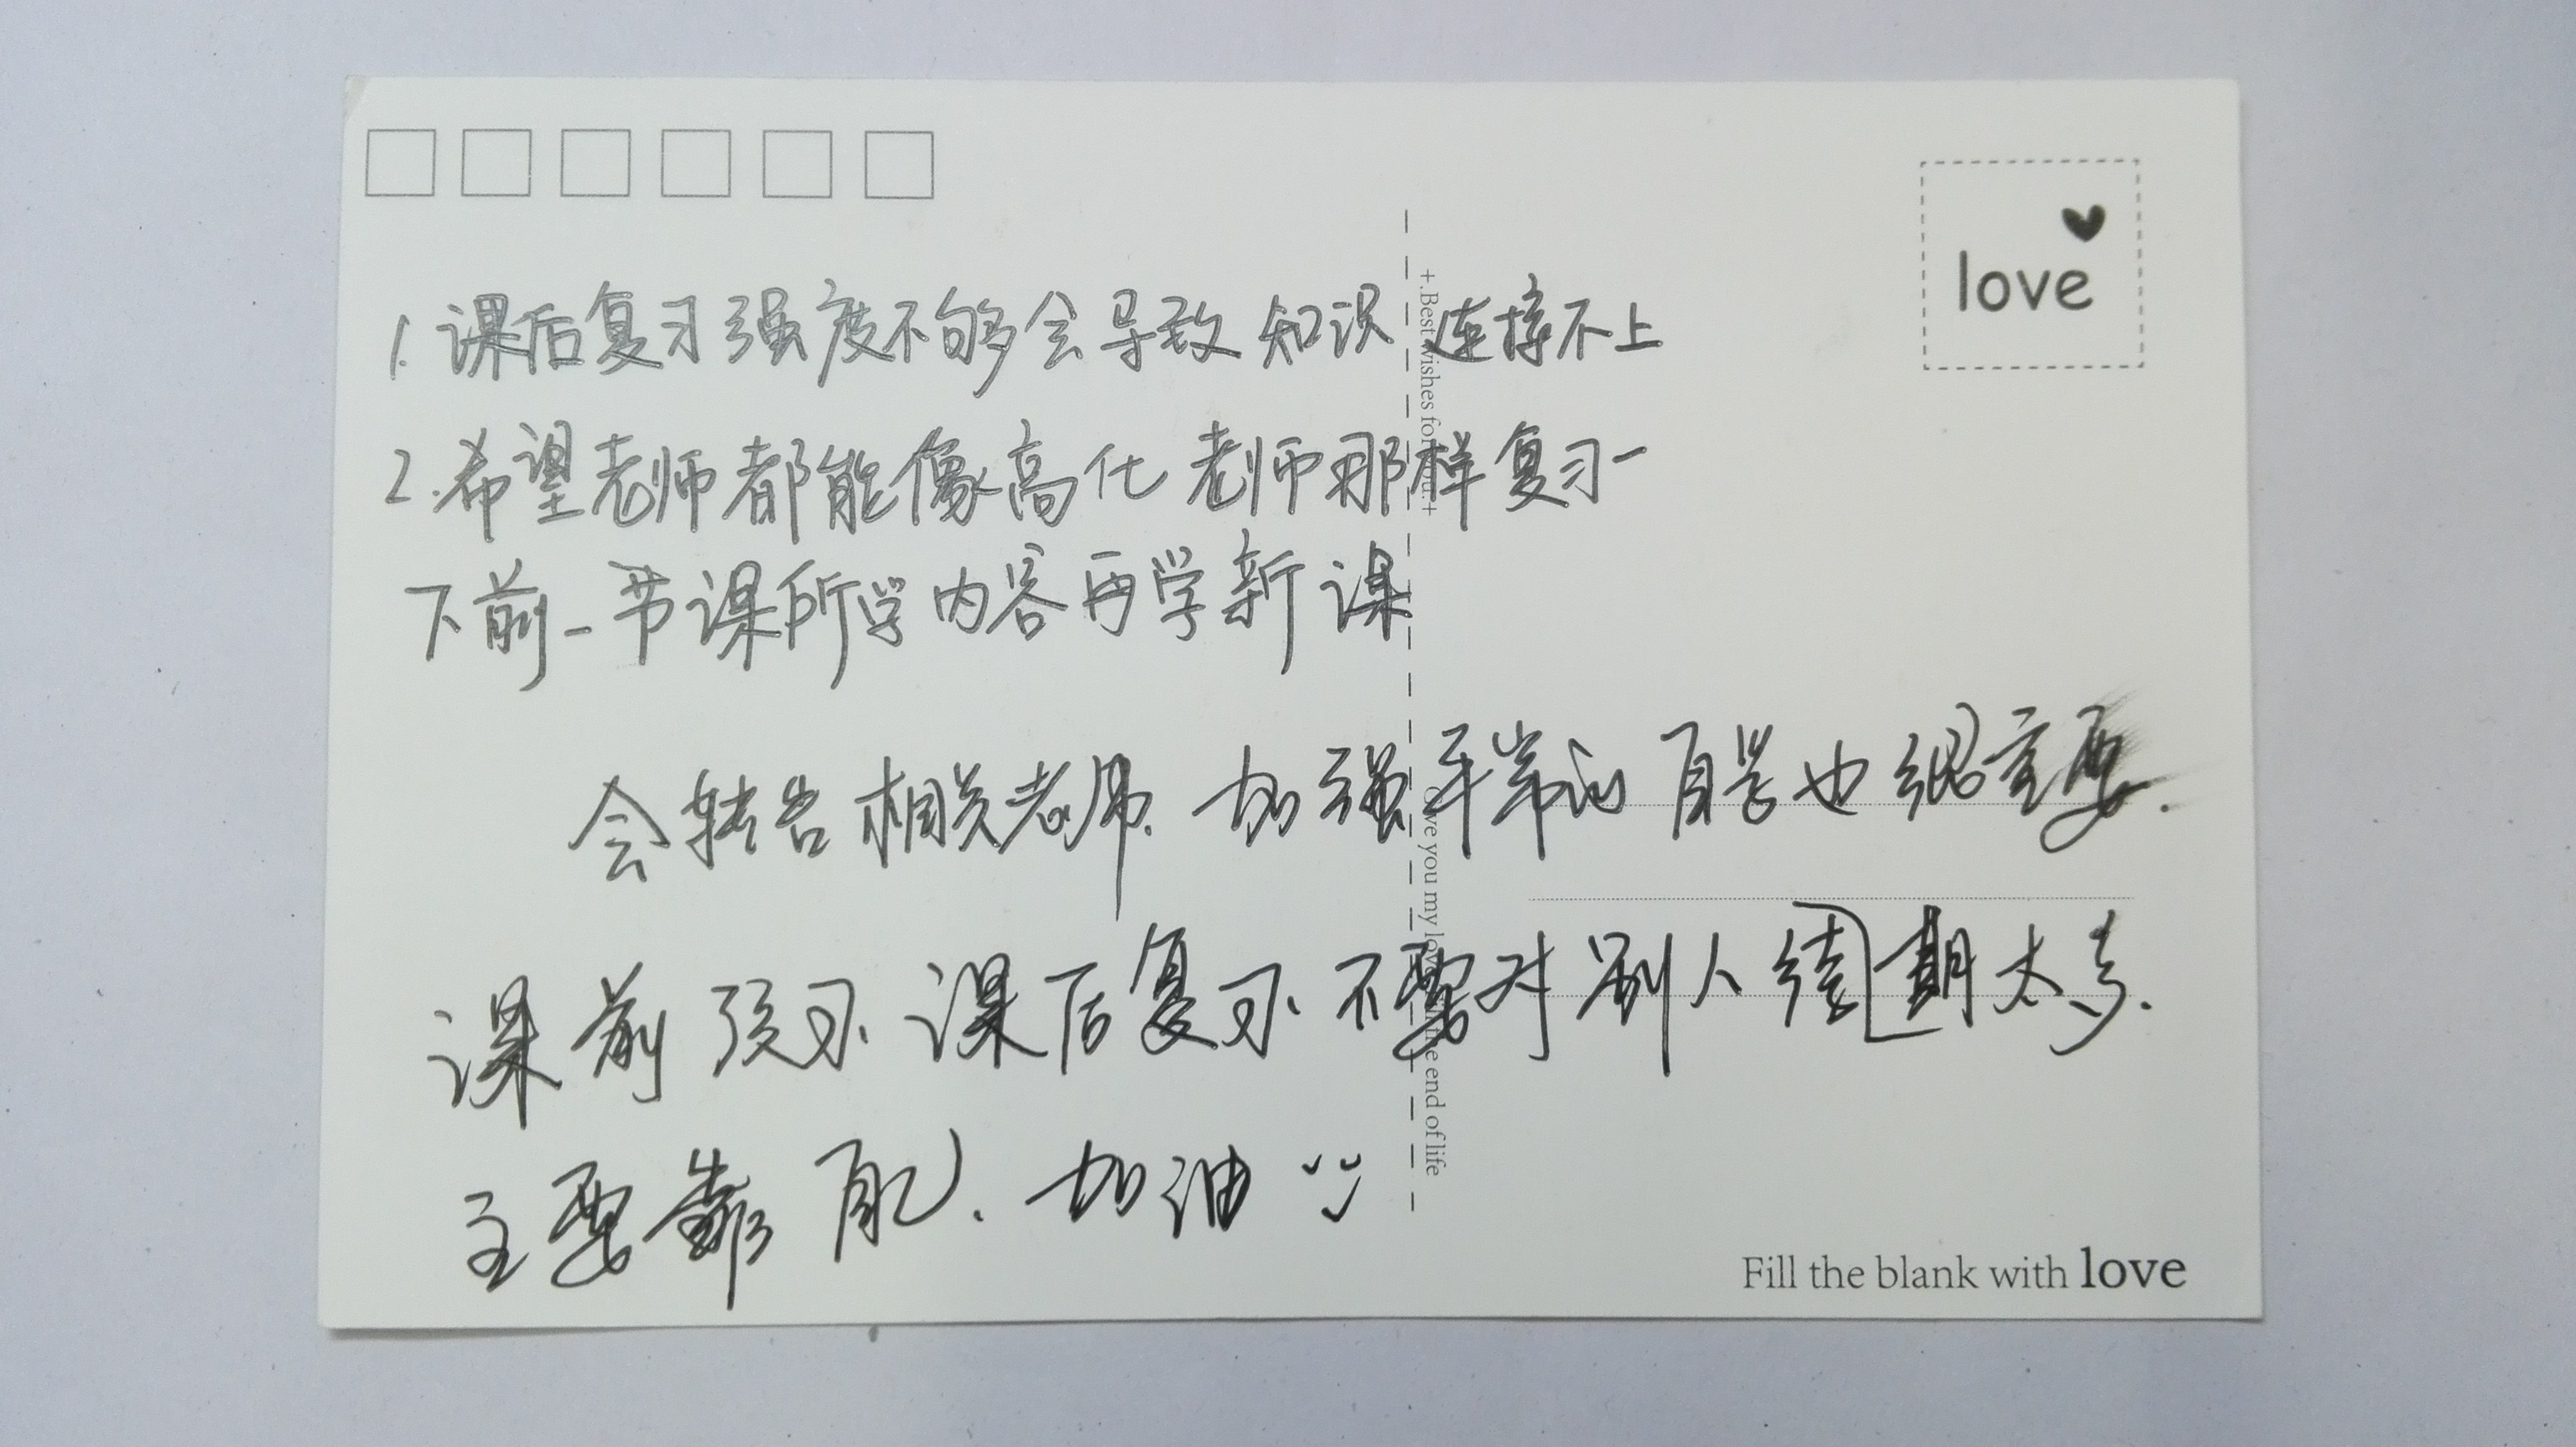 love
1. 课后复习强度不够会导致知识连接不上
2. 希望老师都能像高化老师那样复习一
下前一节课所学内容再学新课
会转告相关老师. 加强平常的自学也很重要.
课前预习. 课后复习. 不要对别人 期太多.
主要靠自己. 加油
+.Best wishes for you.+
Love you my love till the end of life
Fill the blank with love